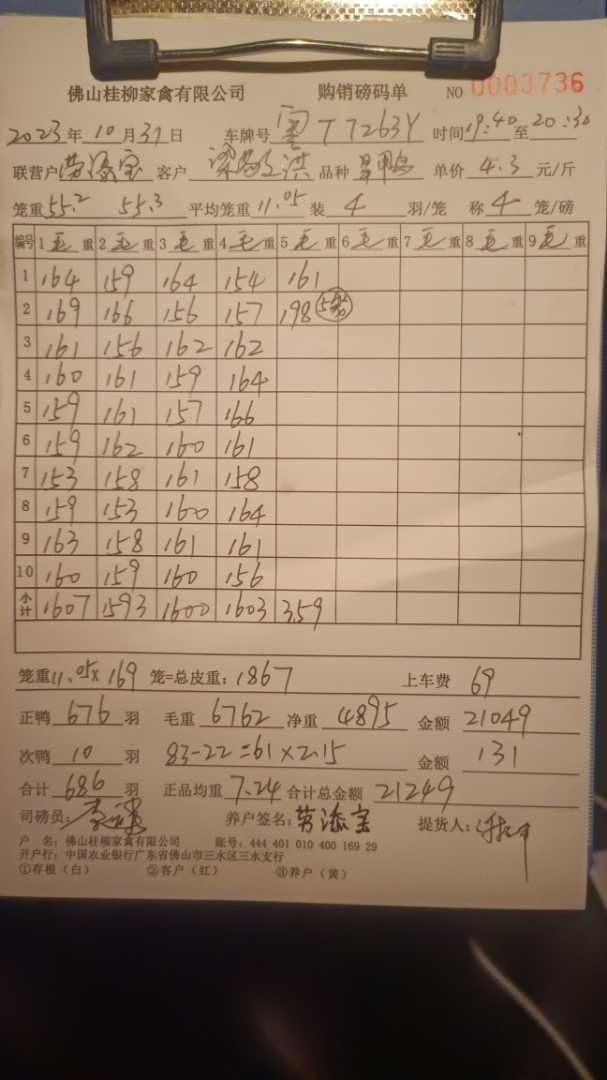 佛山桂柳家禽有限公司 购销磅码单 NO 0003736
2023年10月31日 车牌号 粤T7263Y 时间19:40至20:30
联营户 劳添宝 客户 品种 单价 4.3 元/斤
笼重55.2 55.3 平均笼重11.05 装 4 羽/笼 称 4 笼/磅
编号 1毛重 2毛重 3毛重 4毛重 5毛重 6毛重 7毛重 8毛重 9毛重
1 164 159 164 154 161
2 169 166 156 157 198
3 161 156 162 162
4 160 161 159 164
5 159 161 157 166
6 159 162 160 161
7 153 158 161 158
8 159 153 160 164
9 163 158 161 161
10 160 159 160 156
小计 1607 1593 1600 1603 359
笼重11.05×169笼=总皮重:1867 上车费 69
正鸭 676 羽 毛重 6762 净重 4895 金额 21049
次鸭 10 羽 83-22=61×2.15 金额 131
合计 686 羽 正品均重 7.24 合计总金额 21249
司磅员: 养户签名:劳添宝 提货人:
户 名:佛山桂柳家禽有限公司 账号:444 401 010 400 169 29
开户行:中国农业银行广东省佛山市三水区三水支行
①存根(白) ②客户(红) ③养户(黄)